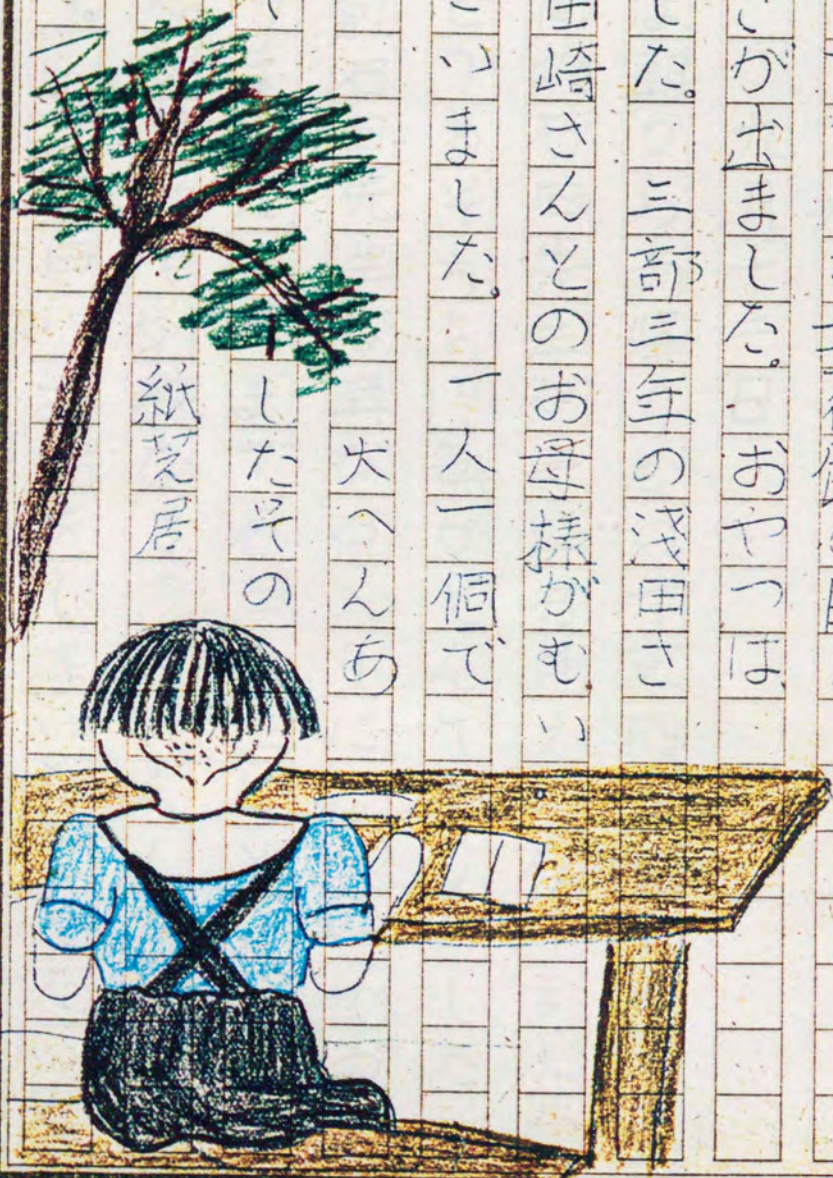 が出ました。おやつは
した。三部三年の浅田さ
崎さんとのお母様がむい
いました。一人一個で
大へんあ
したその
紙芝居